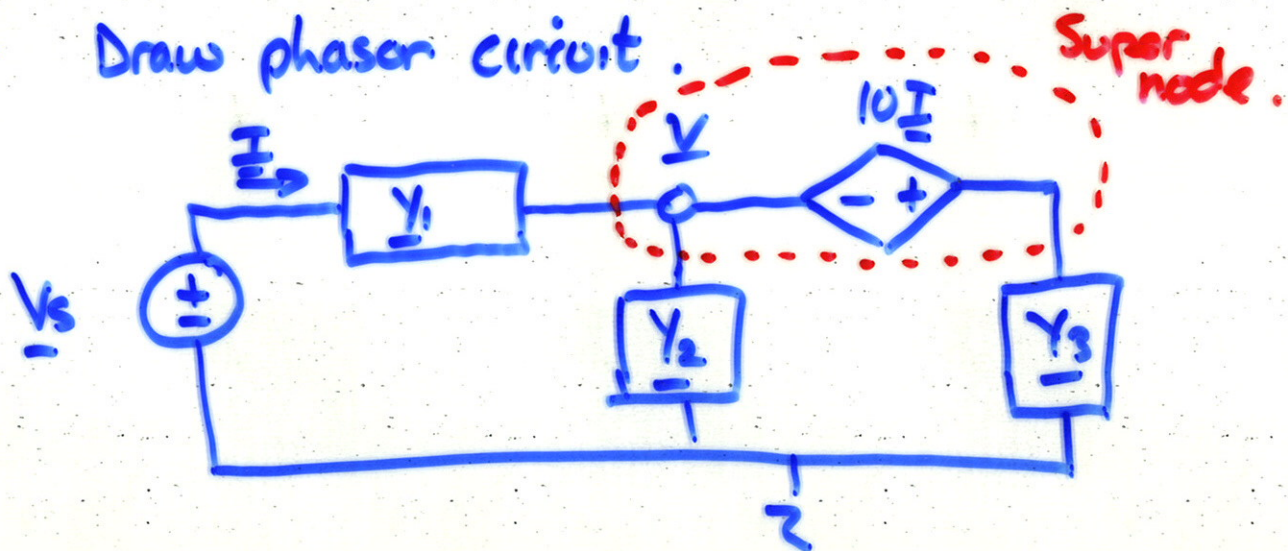 Draw phasor circuit.
Super
node.
10I
I
V
Y1
+
-
- +
Vs
Y2
Y3